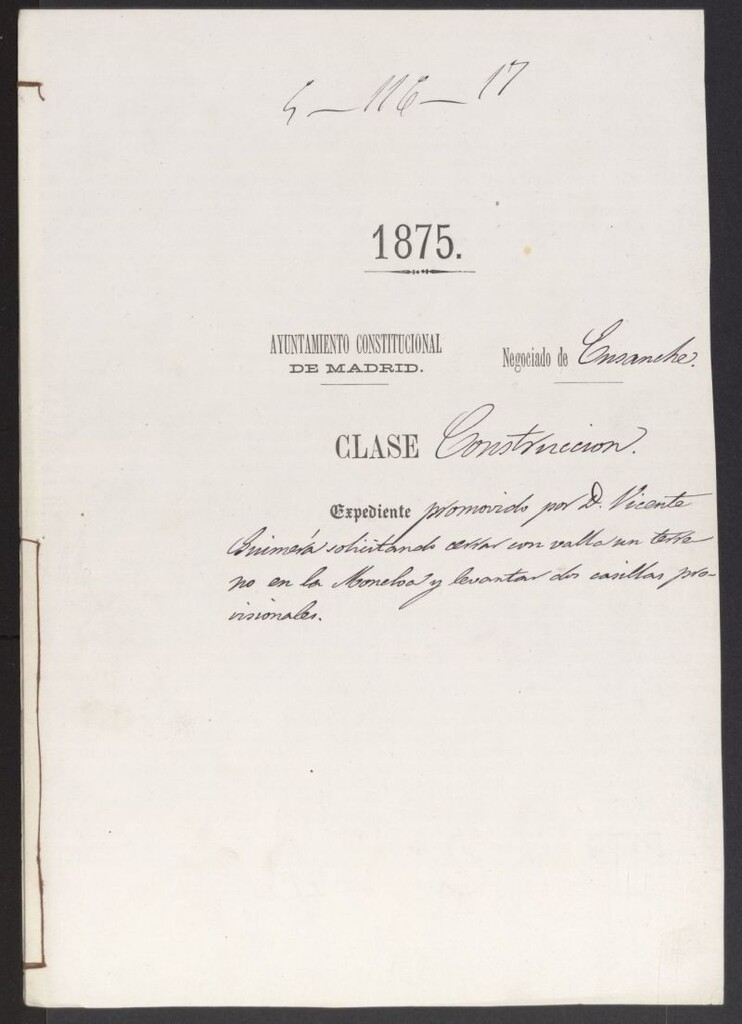 5-116-17
1875.
AYUNTAMIENTO CONSTITUCIONAL
DE MADRID.
Negociado de Ensanche.
CLASE Construccion.
Expediente promovido por D. Vicente
solicitando cerrar con valla un terre
no en la Moncloa y levantar dos casillas pro-
visionales.